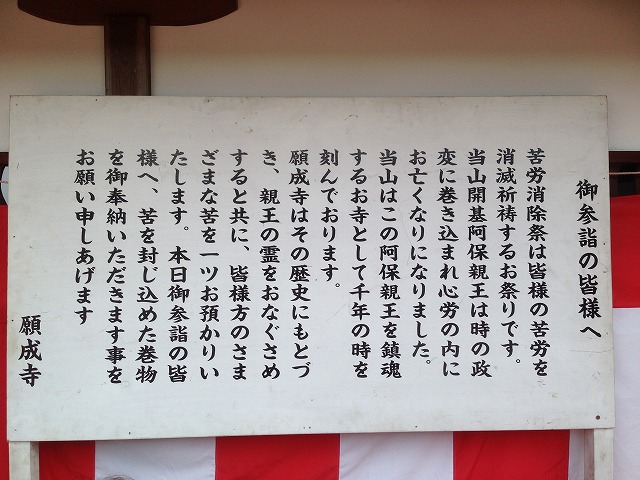 御参詣の皆様へ
苦労消除祭は皆様の苦労を
消滅祈祷するお祭りです。
当山開基阿保親王は時の政
変に巻き込まれ心労の内に
お亡くなりになりました。
当山はこの阿保親王を鎮魂
するお寺として千年の時を
刻んでおります。
願成寺はその歴史にもとづ
き、親王の霊をおなぐさめ
すると共に、皆様方のさま
ざまな苦を一ツお預かりい
たします。本日御参詣の皆
様へ、苦を封じ込めた巻物
を御奉納いただきます事を
お願い申しあげます
願成寺